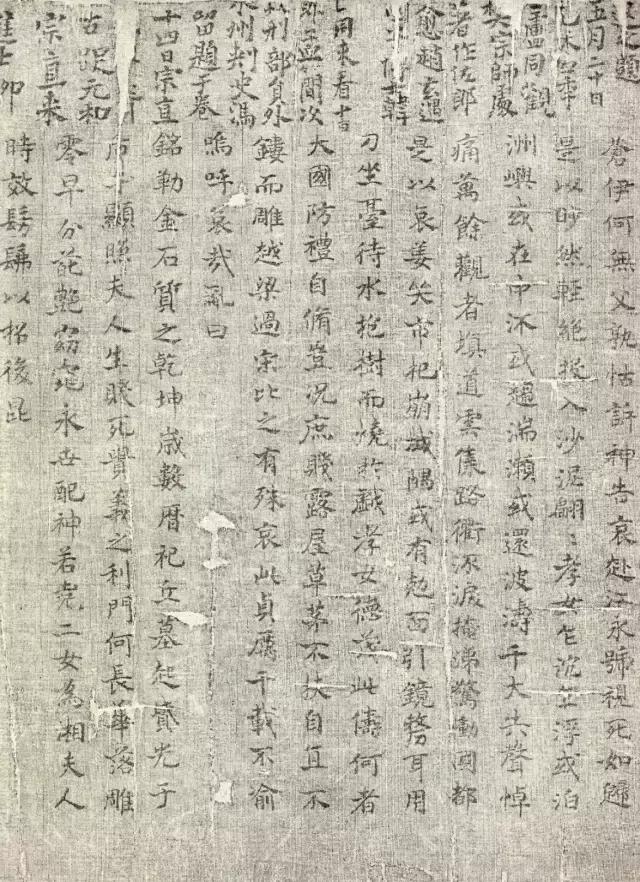 五月二十日
盧同觀
樊宗師處
著作佐郎
愈趙玄遇
韓
同來看書
間次
刑部員外
州刺史馮
留題于卷
十四日宗直
元和
宗直來
蒼伊何無父孰怙訴神告哀赴江永號視死如歸
是以眇然輕絕投入沙泥翩〻孝女乍沉乍浮或泊
洲嶼或在中流或趨湍瀨或還波濤千夫失聲悼
痛萬餘觀者填道雲集路衢流淚掩涕驚慟國都
是以哀姜哭市杞崩城隅或有剋面引鏡剺耳用
刀坐臺待水抱樹而燒於戲孝女德茂此儔何者
大國防禮自脩豈況庶賤露屋草茅不扶自直不
鏤而雕越梁過宋比之有殊哀此貞厲千載不渝
嗚呼哀哉亂曰
銘勒金石質之乾坤歲數曆祀立墓起墳光于
后土顯照夫人生賤死貴義之利門何悵華落雕
零早分葩艷窈窕永世配神若堯二女為湘夫人
時效髣髴以招後昆